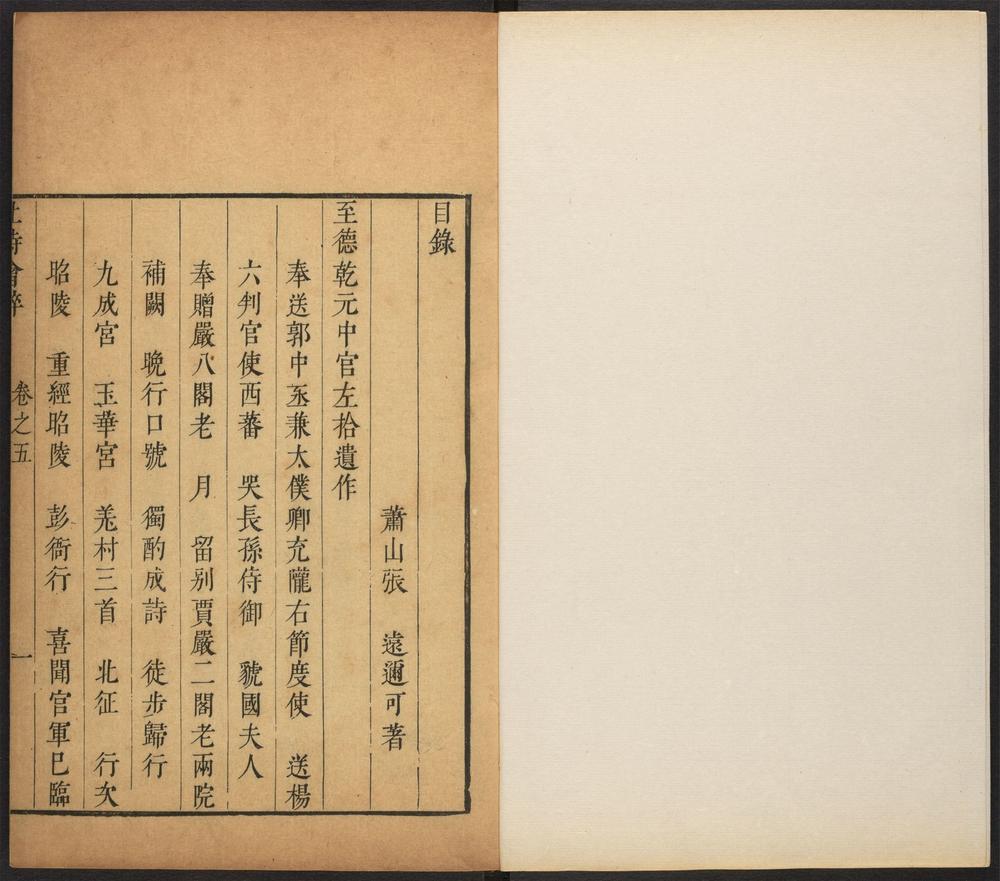 目錄
蕭山張 遠邇可著
至德乾元中官左拾遺作
奉送郭中丞兼太僕卿充隴右節度使 送楊
六判官使西蕃 哭長孫侍御 虢國夫人
奉贈嚴八閣老 月 留别賈嚴二閣老兩院
補闕 晚行口號 獨酌成詩 徒步歸行
九成宮 玉華宮 羌村三首 北征 行次
昭陵 重經昭陵 彭衙行 喜聞官軍已臨
詩會稡 卷之五 一